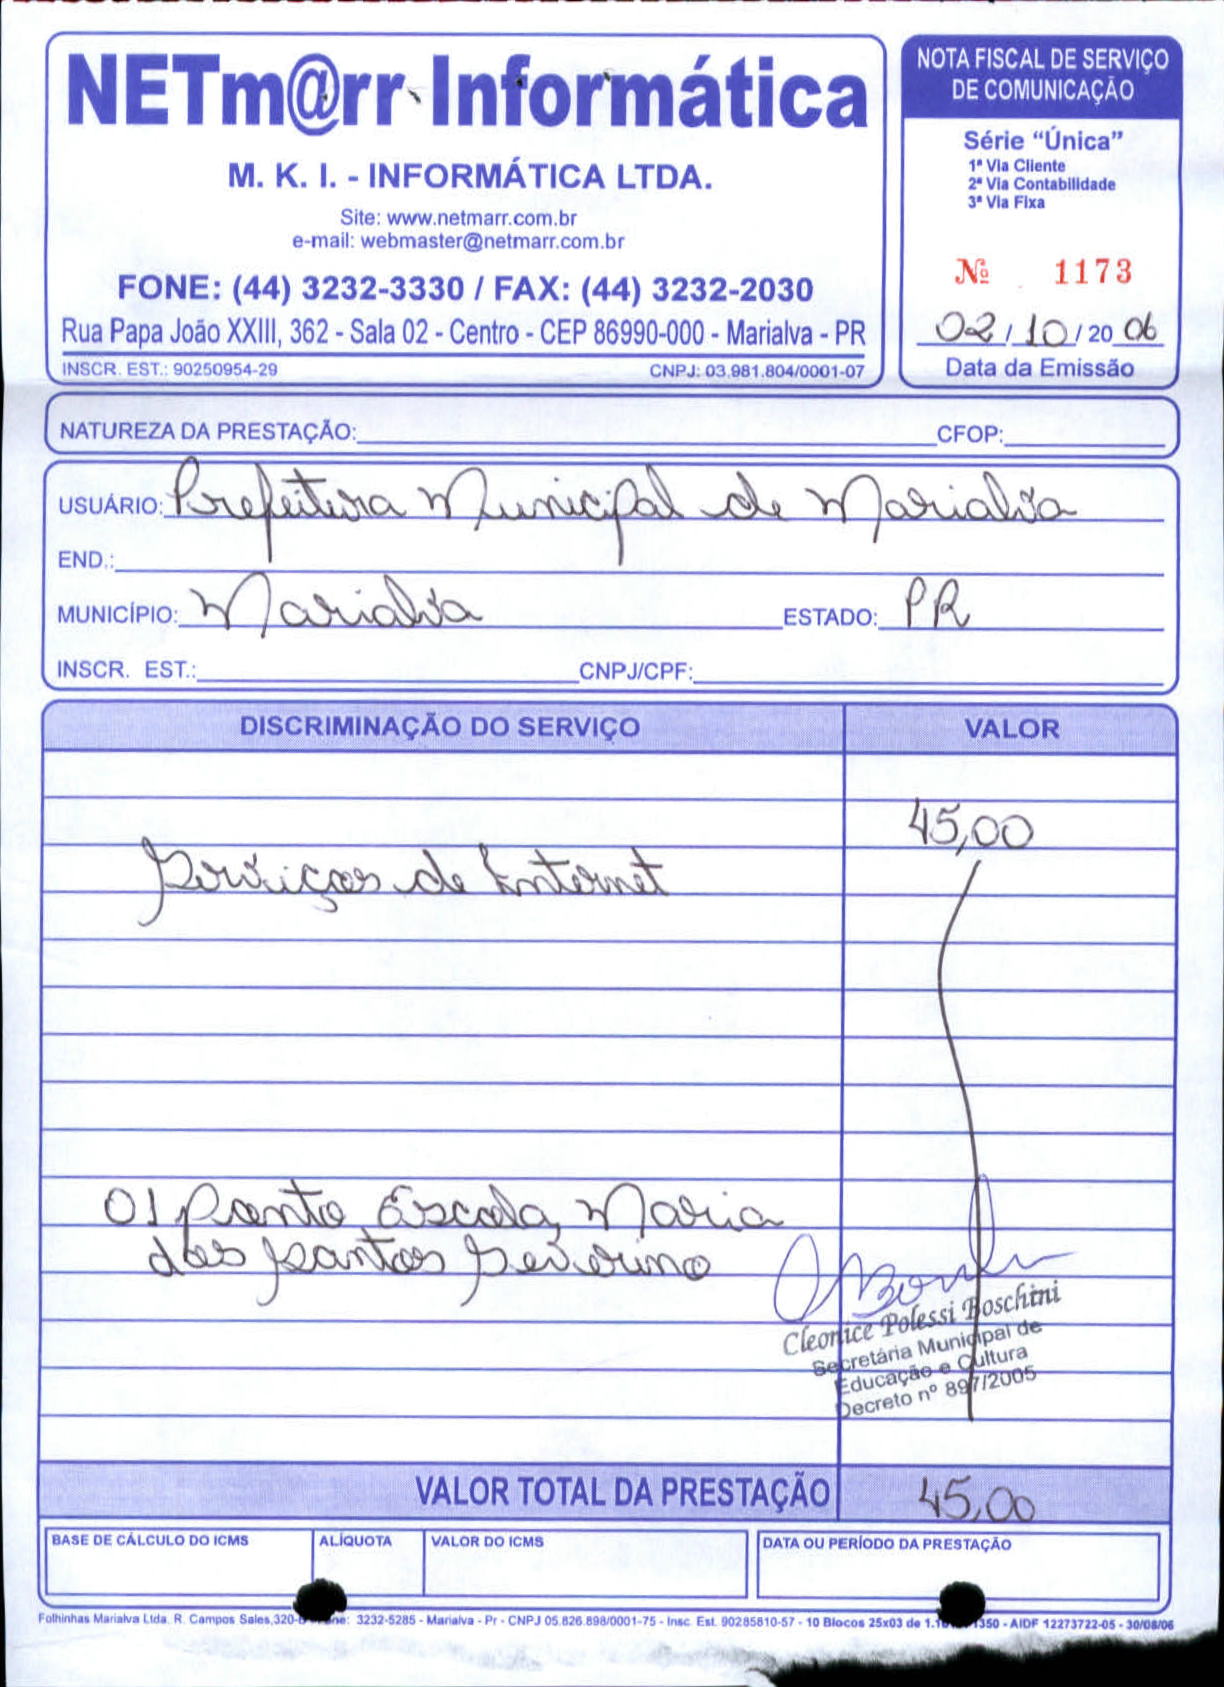 NETm@rr Informática
M. K. I. - INFORMÁTICA LTDA.
Site: www.netmarr.com.br
e-mail: webmaster@netmarr.com.br
FONE: (44) 3232-3330 / FAX: (44) 3232-2030
Rua Papa João XXIII, 362 - Sala 02 - Centro - CEP 86990-000 - Marialva - PR
INSCR. EST.: 90250954-29 CNPJ: 03.981.804/0001-07
NOTA FISCAL DE SERVIÇO
DE COMUNICAÇÃO
Série “Única”
1ª Via Cliente
2ª Via Contabilidade
3ª Via Fixa
Nº 1173
02 / 10 / 20 06
Data da Emissão
NATUREZA DA PRESTAÇÃO: CFOP:
USUÁRIO: Prefeitura Municipal de Marialva
END.:
MUNICÍPIO: Marialva ESTADO: PR
INSCR. EST.: CNPJ/CPF:
DISCRIMINAÇÃO DO SERVIÇO VALOR
45,00
Serviços de Internet
01 Ponto Escola Maria
dos Santos Severino
Cleonice Polessi Boschini
Secretária Municipal de
Educação e Cultura
Decreto nº 897/2005
VALOR TOTAL DA PRESTAÇÃO 45,00
BASE DE CÁLCULO DO ICMS ALÍQUOTA VALOR DO ICMS DATA OU PERÍODO DA PRESTAÇÃO
Folhinhas Marialva Ltda. R. Campos Sales, 3232-5285 - Marialva - Pr - CNPJ 05.826.898/0001-75 - Insc. Est. 90285810-57 - 10 Blocos 25x03 de - AIDF 12273722-05 - 30/08/06